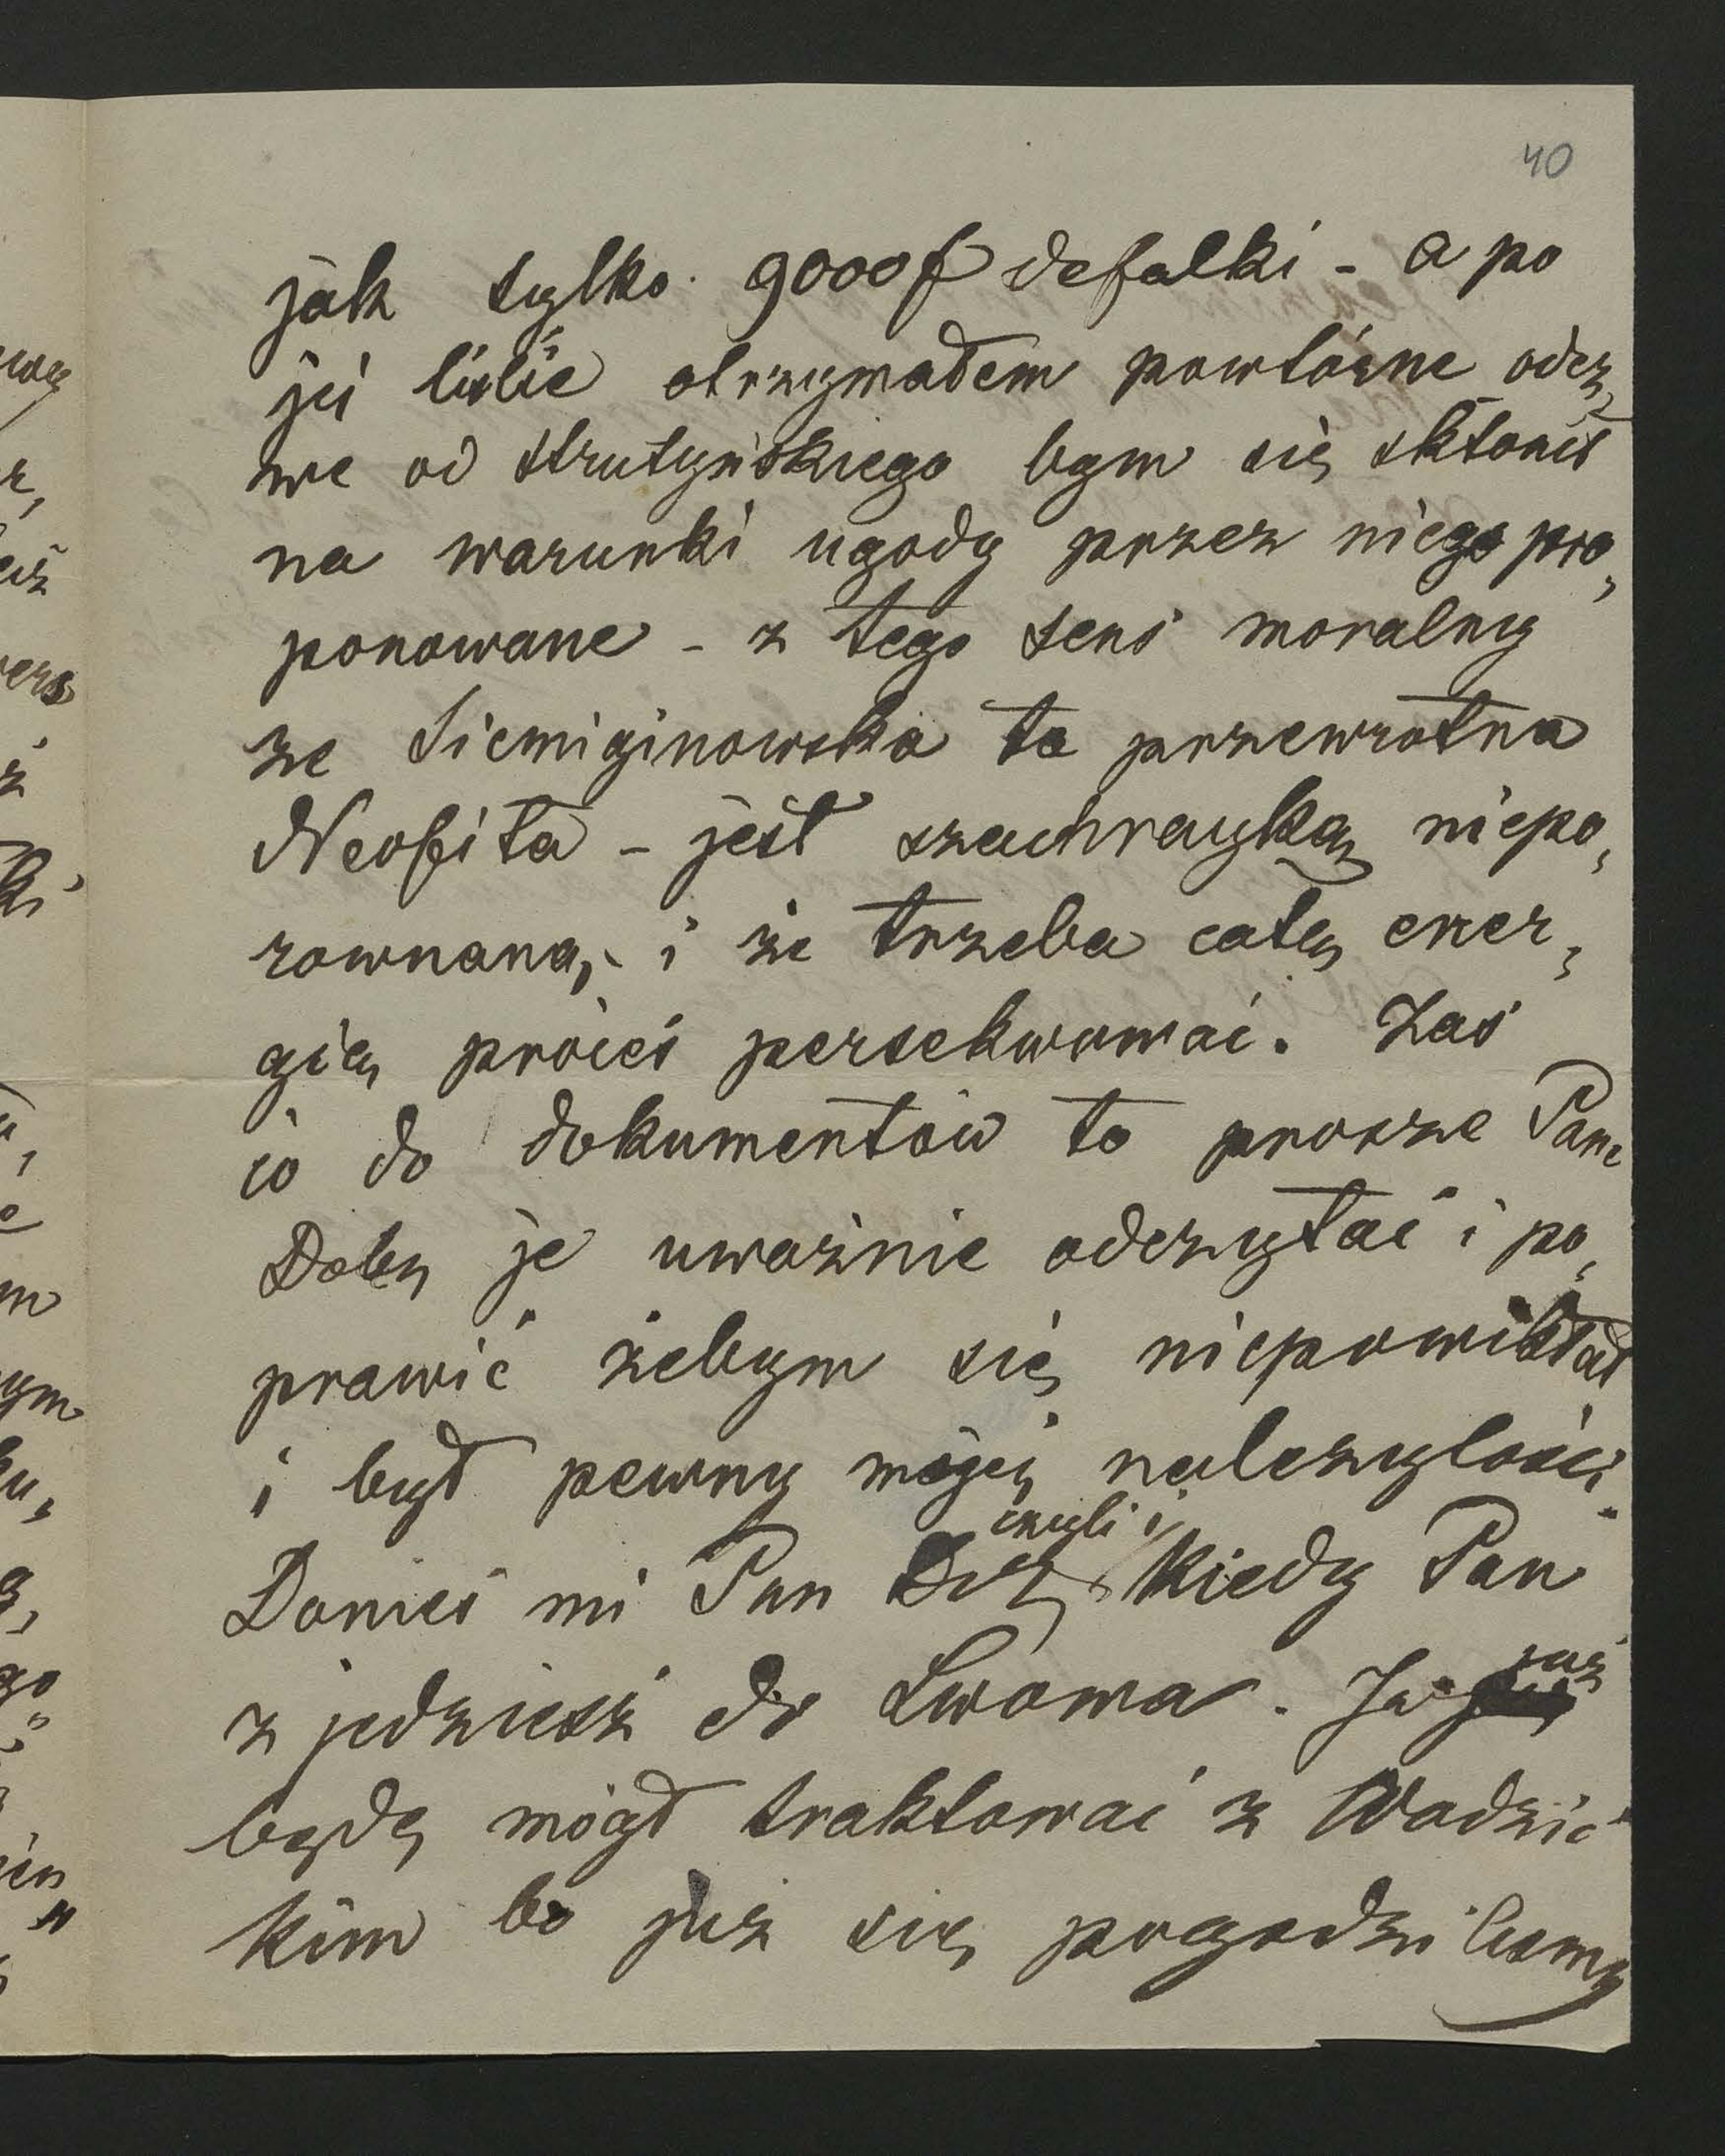 40
jak tylko 9000 f defalki - a po
jej liście otrzymałem powtórne odez„
we od Strutyńskiego bym się skłonił
na warunki ugody przez niego pro„
ponowane - z tego sens moralny
że Siemiginowska ta przewrotna
Neofita - jest szachrayką niepo„
rownaną, i że trzeba całą ener„
gią proces persekwować. Zaś
co do dokumentów to prosze Pana
Dobr je uważnie odczytać i po„
prawić żebym się niepowikłał
i był pewny mojej należytości.
czyli i
Donieś mi Pan kiedy Pan
zjedziesz do Lwowa. Ja już
będę mógł traktować z Wodzic
kim bo już się pogodziliśmy